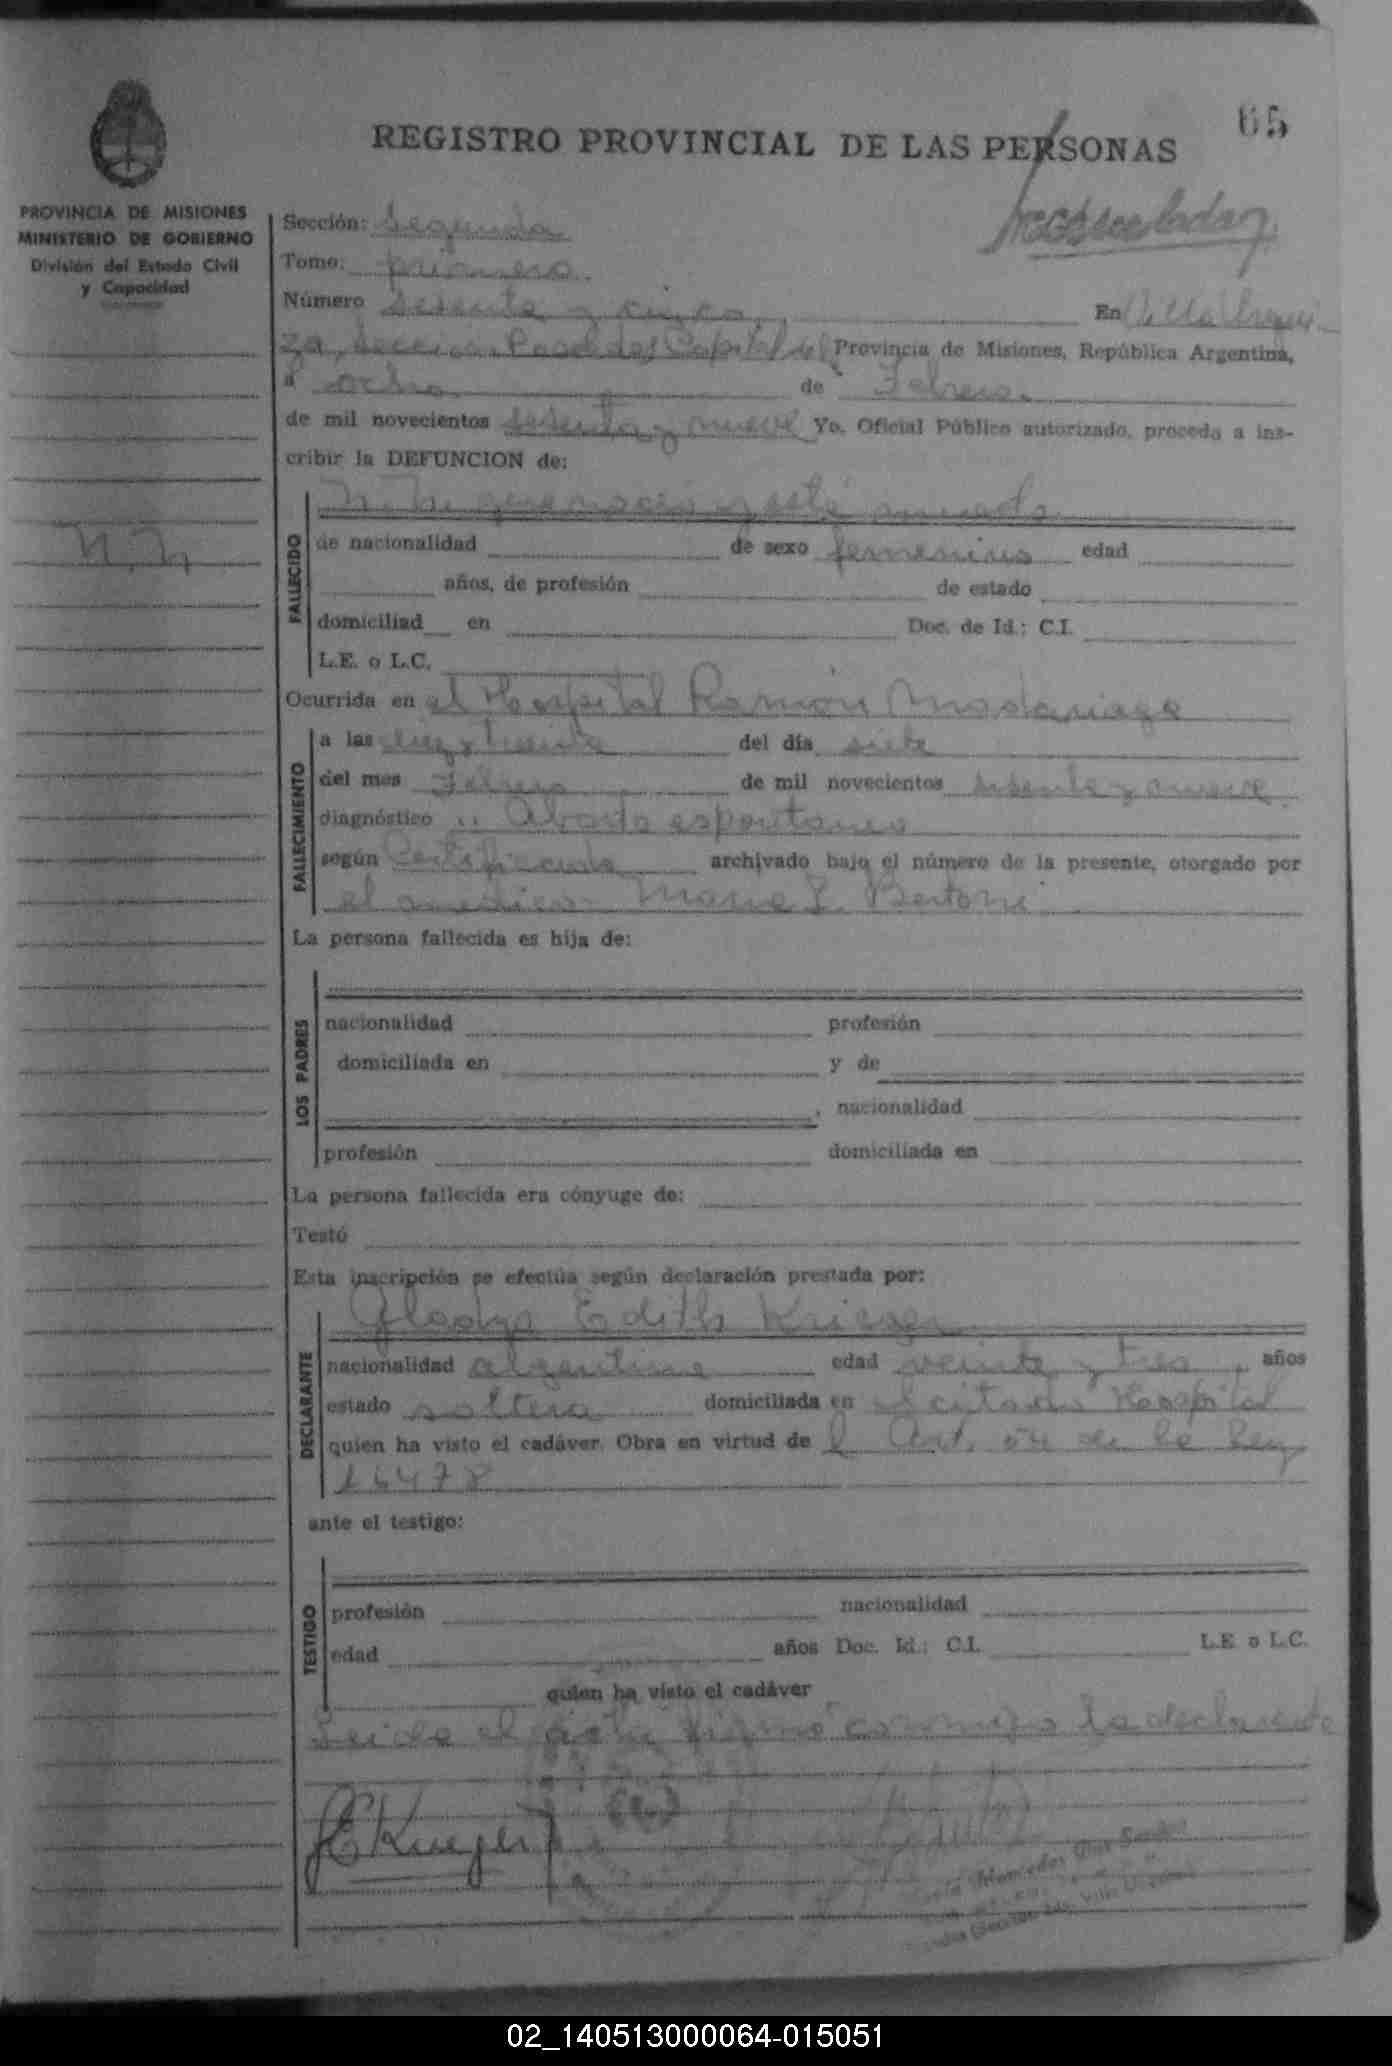 65
REGISTRO PROVINCIAL DE LAS PERSONAS
PROVINCIA DE MISIONES
MINISTERIO DE GOBIERNO
División del Estado Civil
y Capacidad
Sección: Segunda
Tomo: primero.
Número Sesenta y cinco. En Villa Urqui-
za, Sección Posadas Capital de Provincia de Misiones, República Argentina,
a ocho de Febrero.
de mil novecientos sesenta y nueve Yo, Oficial Público autorizado, procedo a ins-
cribir la DEFUNCION de:
N. N.
FALLECIDO
N. N. que nació y está muerto
de nacionalidad de sexo femenino edad
años, de profesión de estado
domiciliad en Doc. de Id.: C.I.
L.E. o L.C.
Ocurrida en el Hospital Ramón Madariaga
FALLECIMIENTO
a las diez y treinta del día siete
del mes Febrero de mil novecientos sesenta y nueve.
diagnóstico Aborto espontaneo
según Certificado archivado bajo el número de la presente, otorgado por
el medico Bertoni
La persona fallecida es hija de:
LOS PADRES
nacionalidad profesión
domiciliada en y de
, nacionalidad
profesión domiciliada en
La persona fallecida era cónyuge de:
Testó
Esta inscripción se efectúa según declaración prestada por:
DECLARANTE
Gladys Edith Krieger
nacionalidad argentina edad veinte y tres, años
estado soltera domiciliada en el citado Hospital
quien ha visto el cadáver. Obra en virtud de l Art. 54 de la Ley
16478
ante el testigo:
TESTIGO
profesión nacionalidad
edad años Doc. Id.: C.I. L.E. o L.C.
quien ha visto el cadáver
Leida el acta firmó conmigo la declarante
GEKrieger
02_140513000064-015051